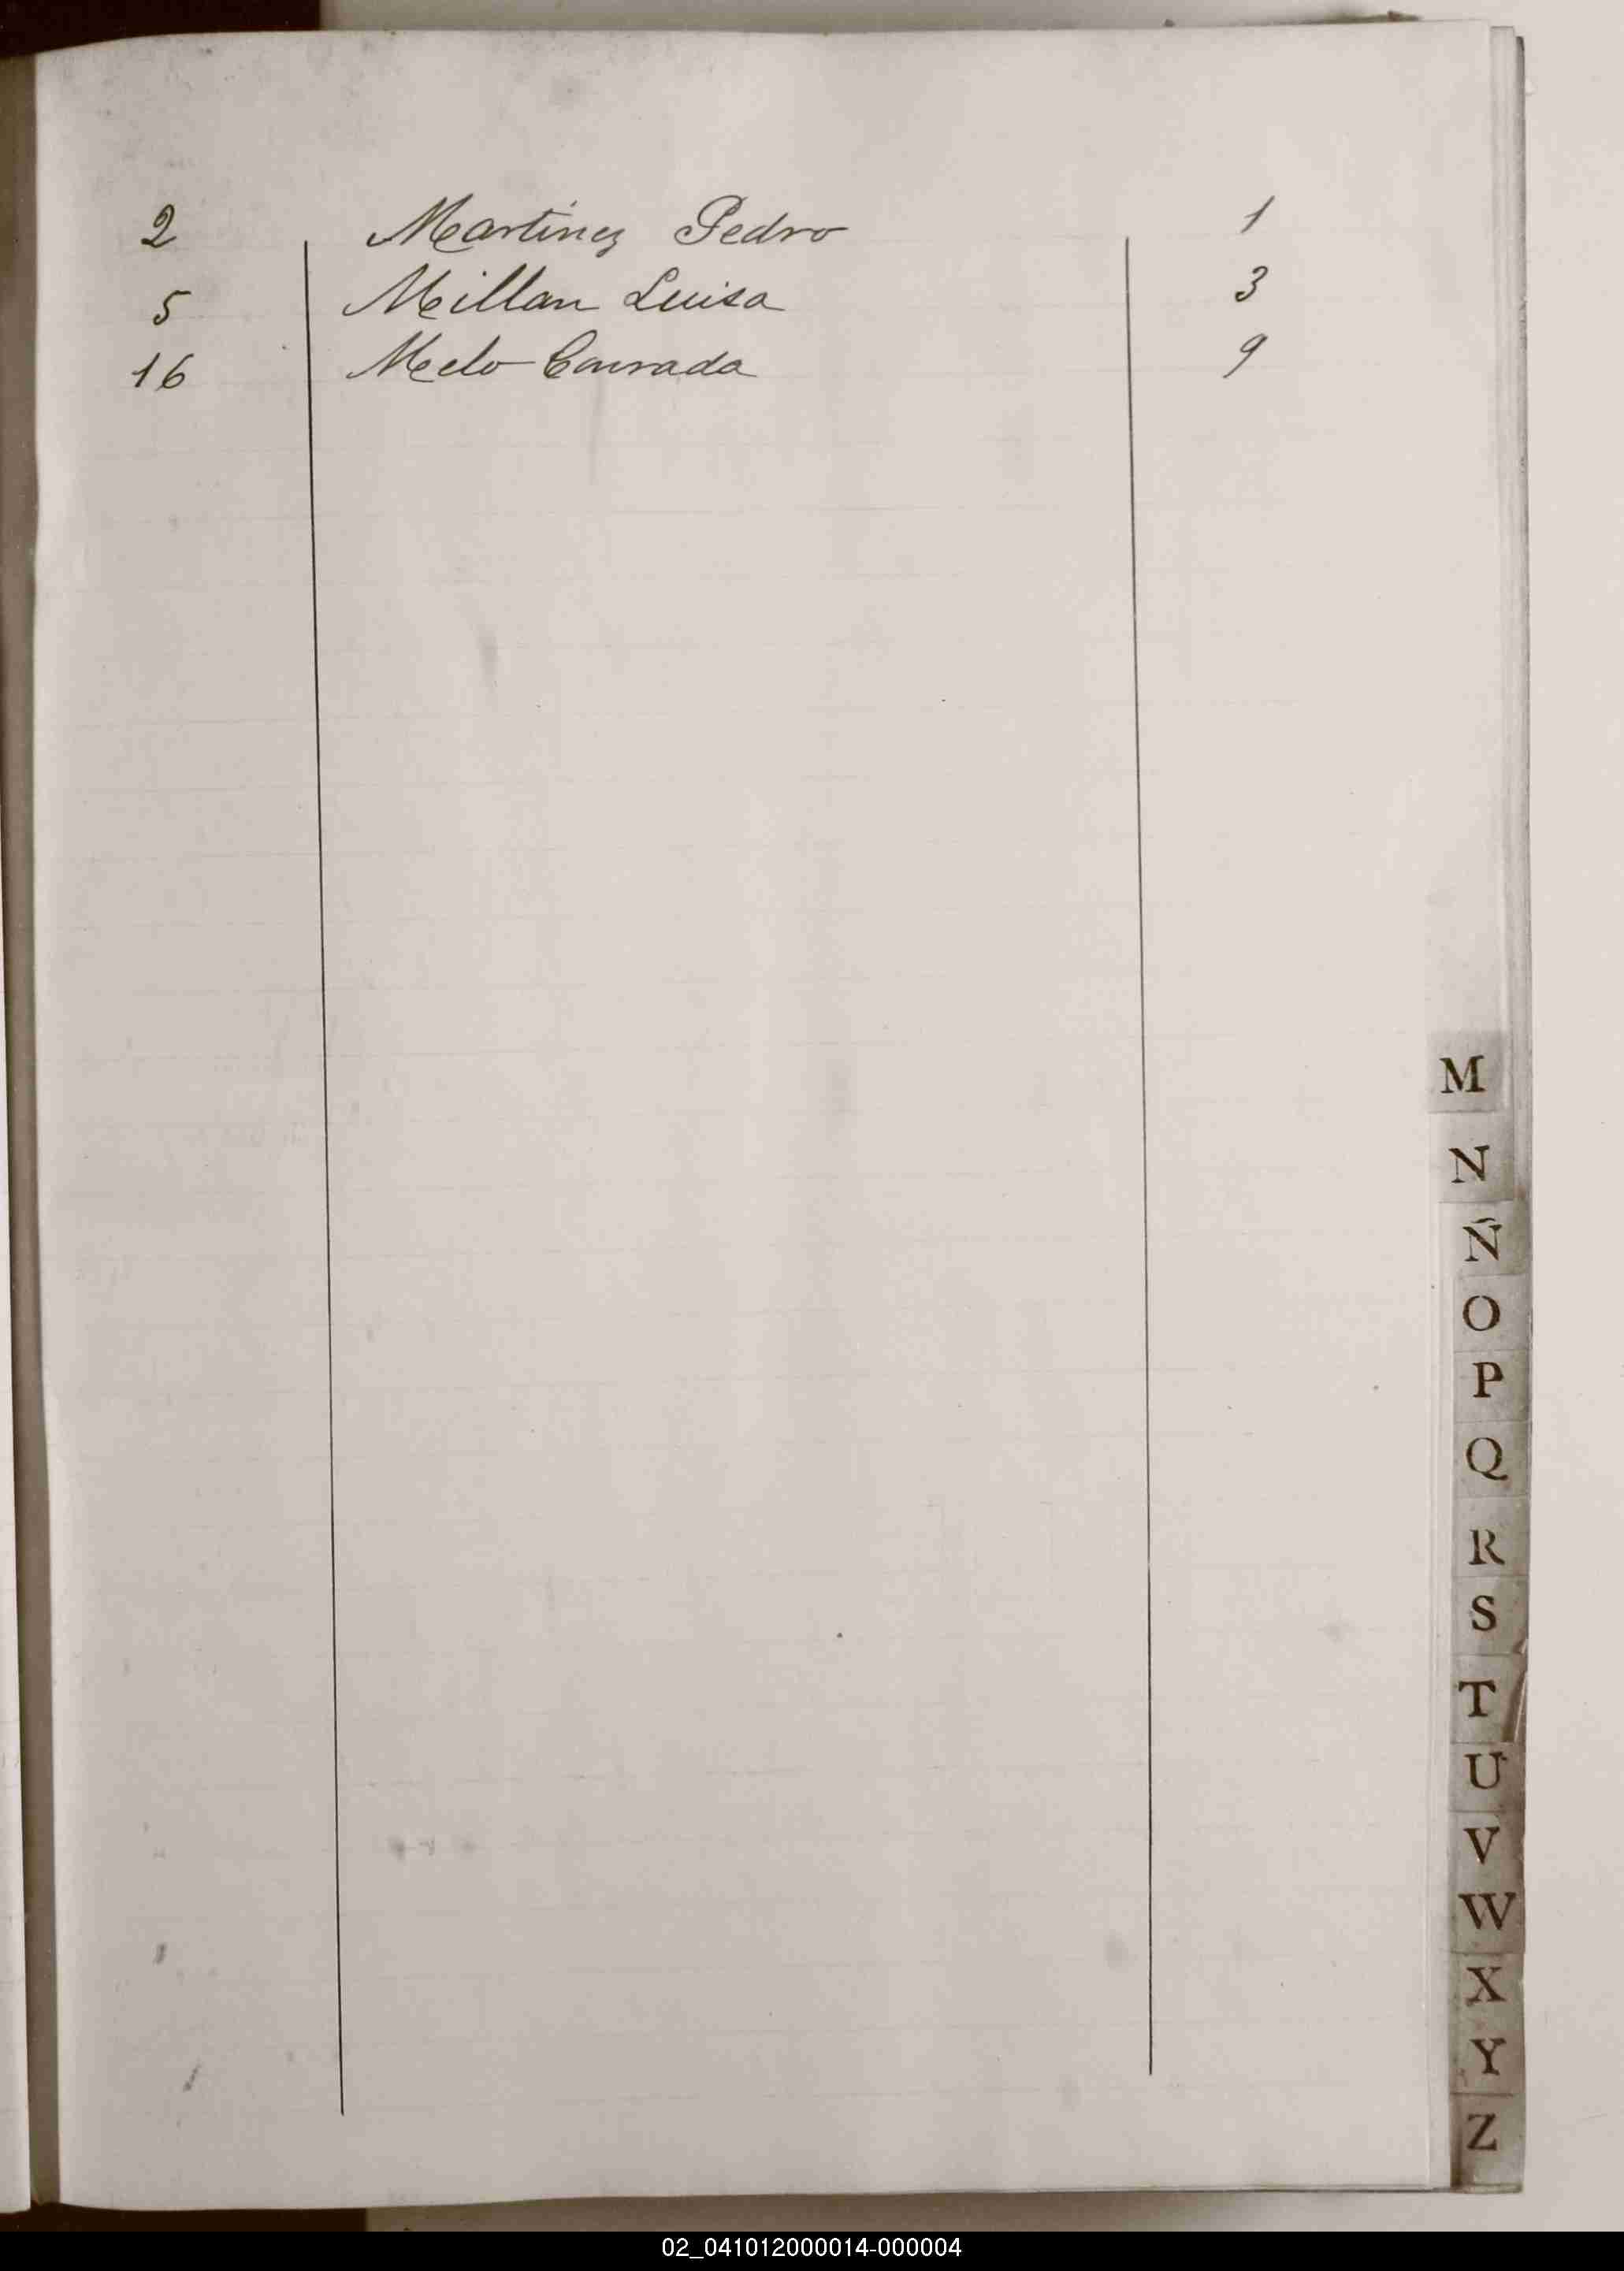 2 Martinez Pedro 1
5 Millan Luisa 3
16 Melo Conrada 9
M
N
Ñ
O
P
Q
R
S
T
U
V
W
X
Y
Z
02_041012000014-000004